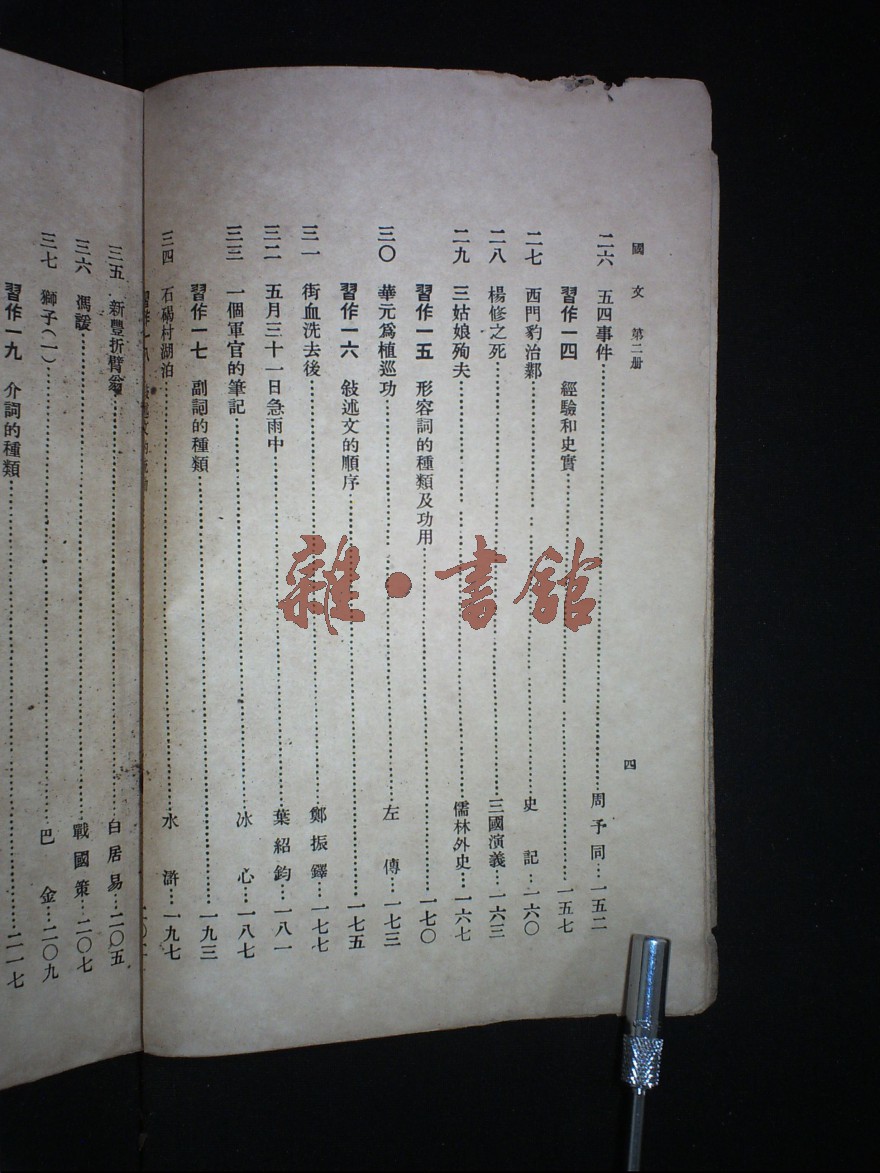 國文 第二册
四
二六 五四事件……周予同…一五二
習作一四 經驗和史實……一五七
二七 西門豹治鄴……史記…一六〇
二八 楊修之死……三國演義…一六三
二九 三姑娘殉夫……儒林外史…一六七
習作一五 形容詞的種類及功用……一七〇
三〇 華元爲植巡功……左傳…一七三
習作一六 敍述文的順序……一七五
三一 街血洗去後……鄭振鐸…一七七
三二 五月三十一日急雨中……葉紹鈞…一八一
三三 一個軍官的筆記……冰心…一八七
習作一七 副詞的種類……一九三
三四 石碣村湖泊……水滸…一九七
習作一八
三五 新豐折臂翁……白居易…二〇五
三六 馮諼……戰國策…二〇七
三七 獅子(一)……巴金…二〇九
習作一九 介詞的種類……二一七
雜·書館